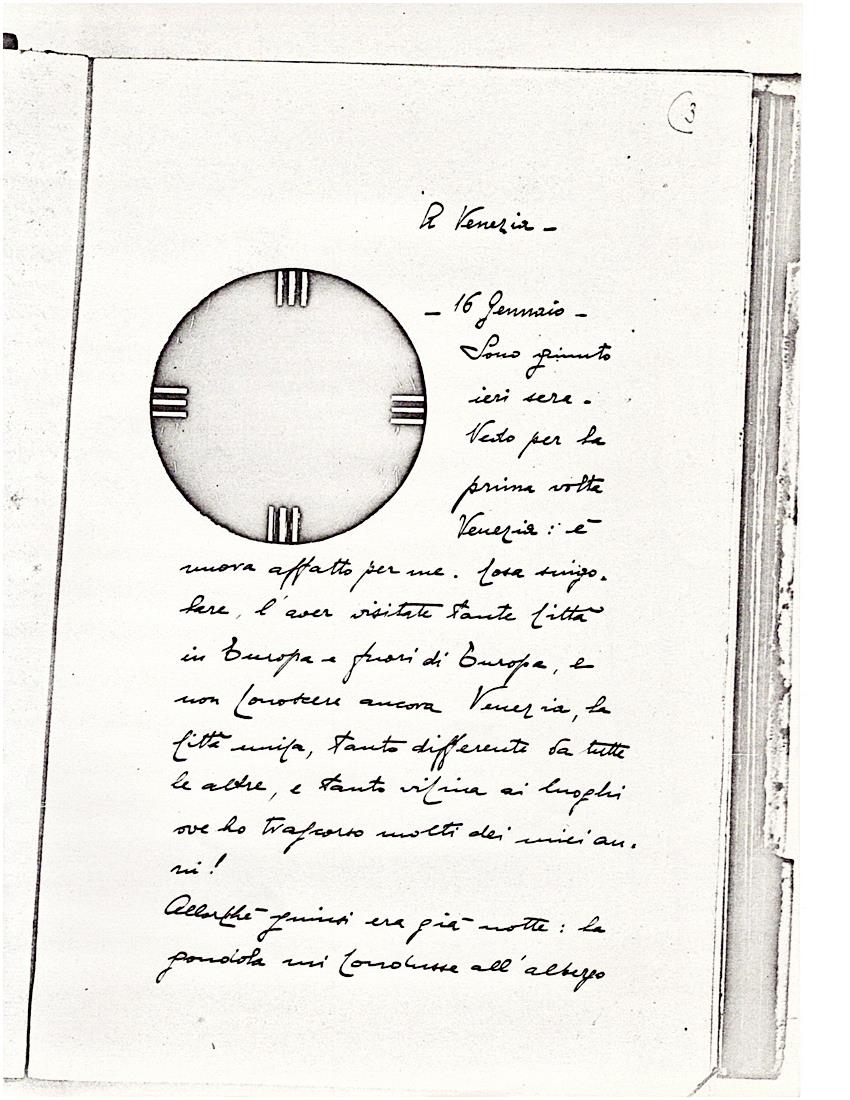 3
A Venezia -
- 16 Gennaio -
Sono giunto
ieri sera.
Vedo per la
prima volta
Venezia: è
nuova affatto per me. Cosa singo-
lare, l'aver visitate tante Città
in Europa e fuori di Europa, e
non Conoscere ancora Venezia, la
Città unica, tanto differente da tutte
le altre, e tanto vicina ai luoghi
ove ho trascorso molti dei miei an-
ni!
Allorchè giunsi era già notte: la
gondola mi Condusse all'albergo